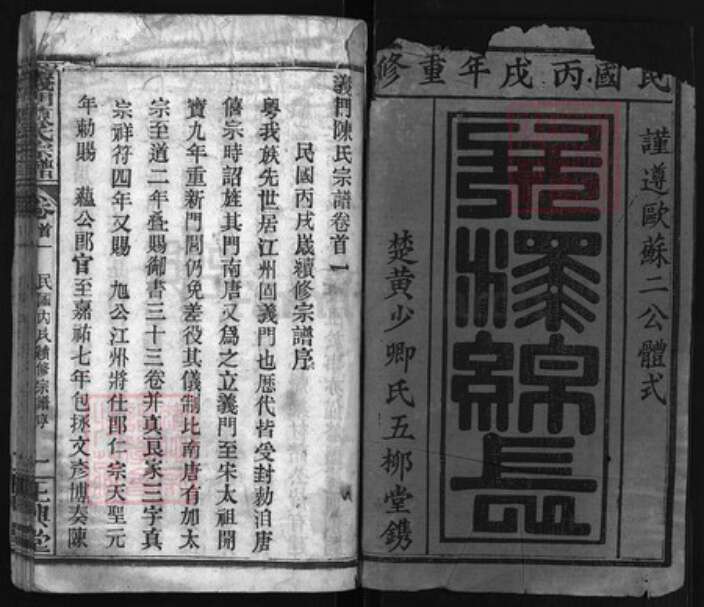 民國丙戌年重修
謹遵歐蘇二公體式
澤綿長
楚黃少卿氏五柳堂鐫
義門陳氏宗譜卷首一
民國丙戌歲續修宗譜序
粵我族先世居江州固義門也歷代皆受封勅洎唐
僖宗時詔旌其門南唐又爲之立義門至宋太祖開
寶九年重新門閭仍免差役其儀制比南唐有加太
宗至道二年叠賜御書三十三卷并真良家三字真
宗祥符四年又賜 旭公江州將仕郎仁宗天聖元
年勅賜 蘊公郎官至嘉祐七年包拯文彥博奏陳
義門陳氏宗譜 卷首一 民國丙戌續修宗譜序 一